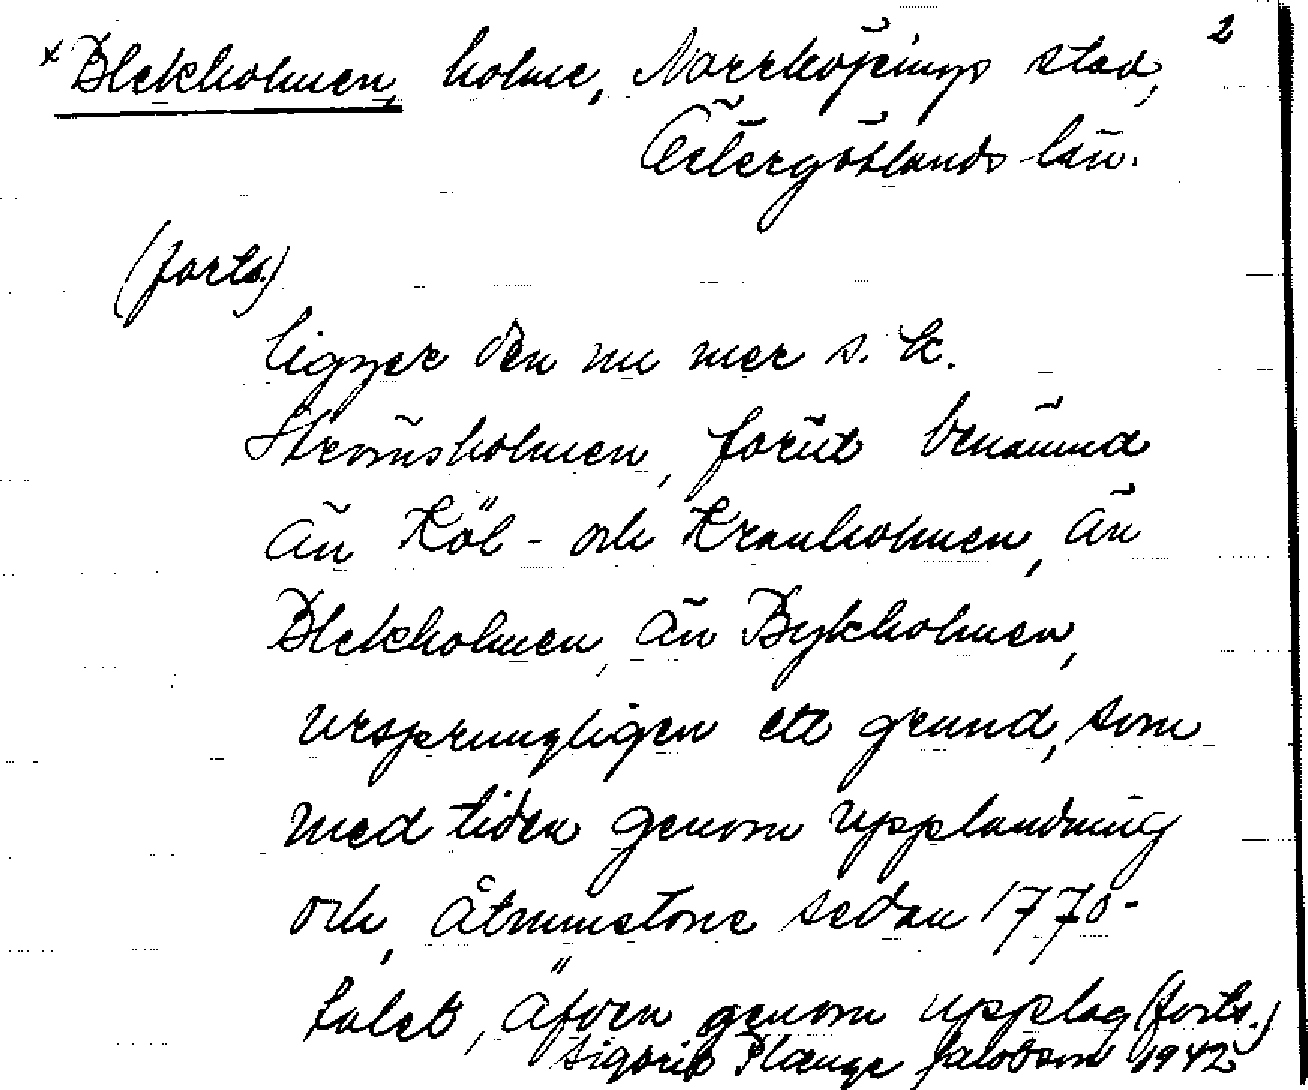 2
x Blekholmen, holme, Norrköpings stad,
Östergötlands län.
(forts.)
ligger den nu mer s. k.
Strömsholmen, förut benämnd
än Köl- och Kranholmen, än
Blekholmen, än Bykholmen,
ursprungligen ett grund, som
med tiden genom upplandning
och, åtminstone sedan 1770-
talet, äfven genom upplag (forts.)
Sigurd Plænge Jakobson 1942